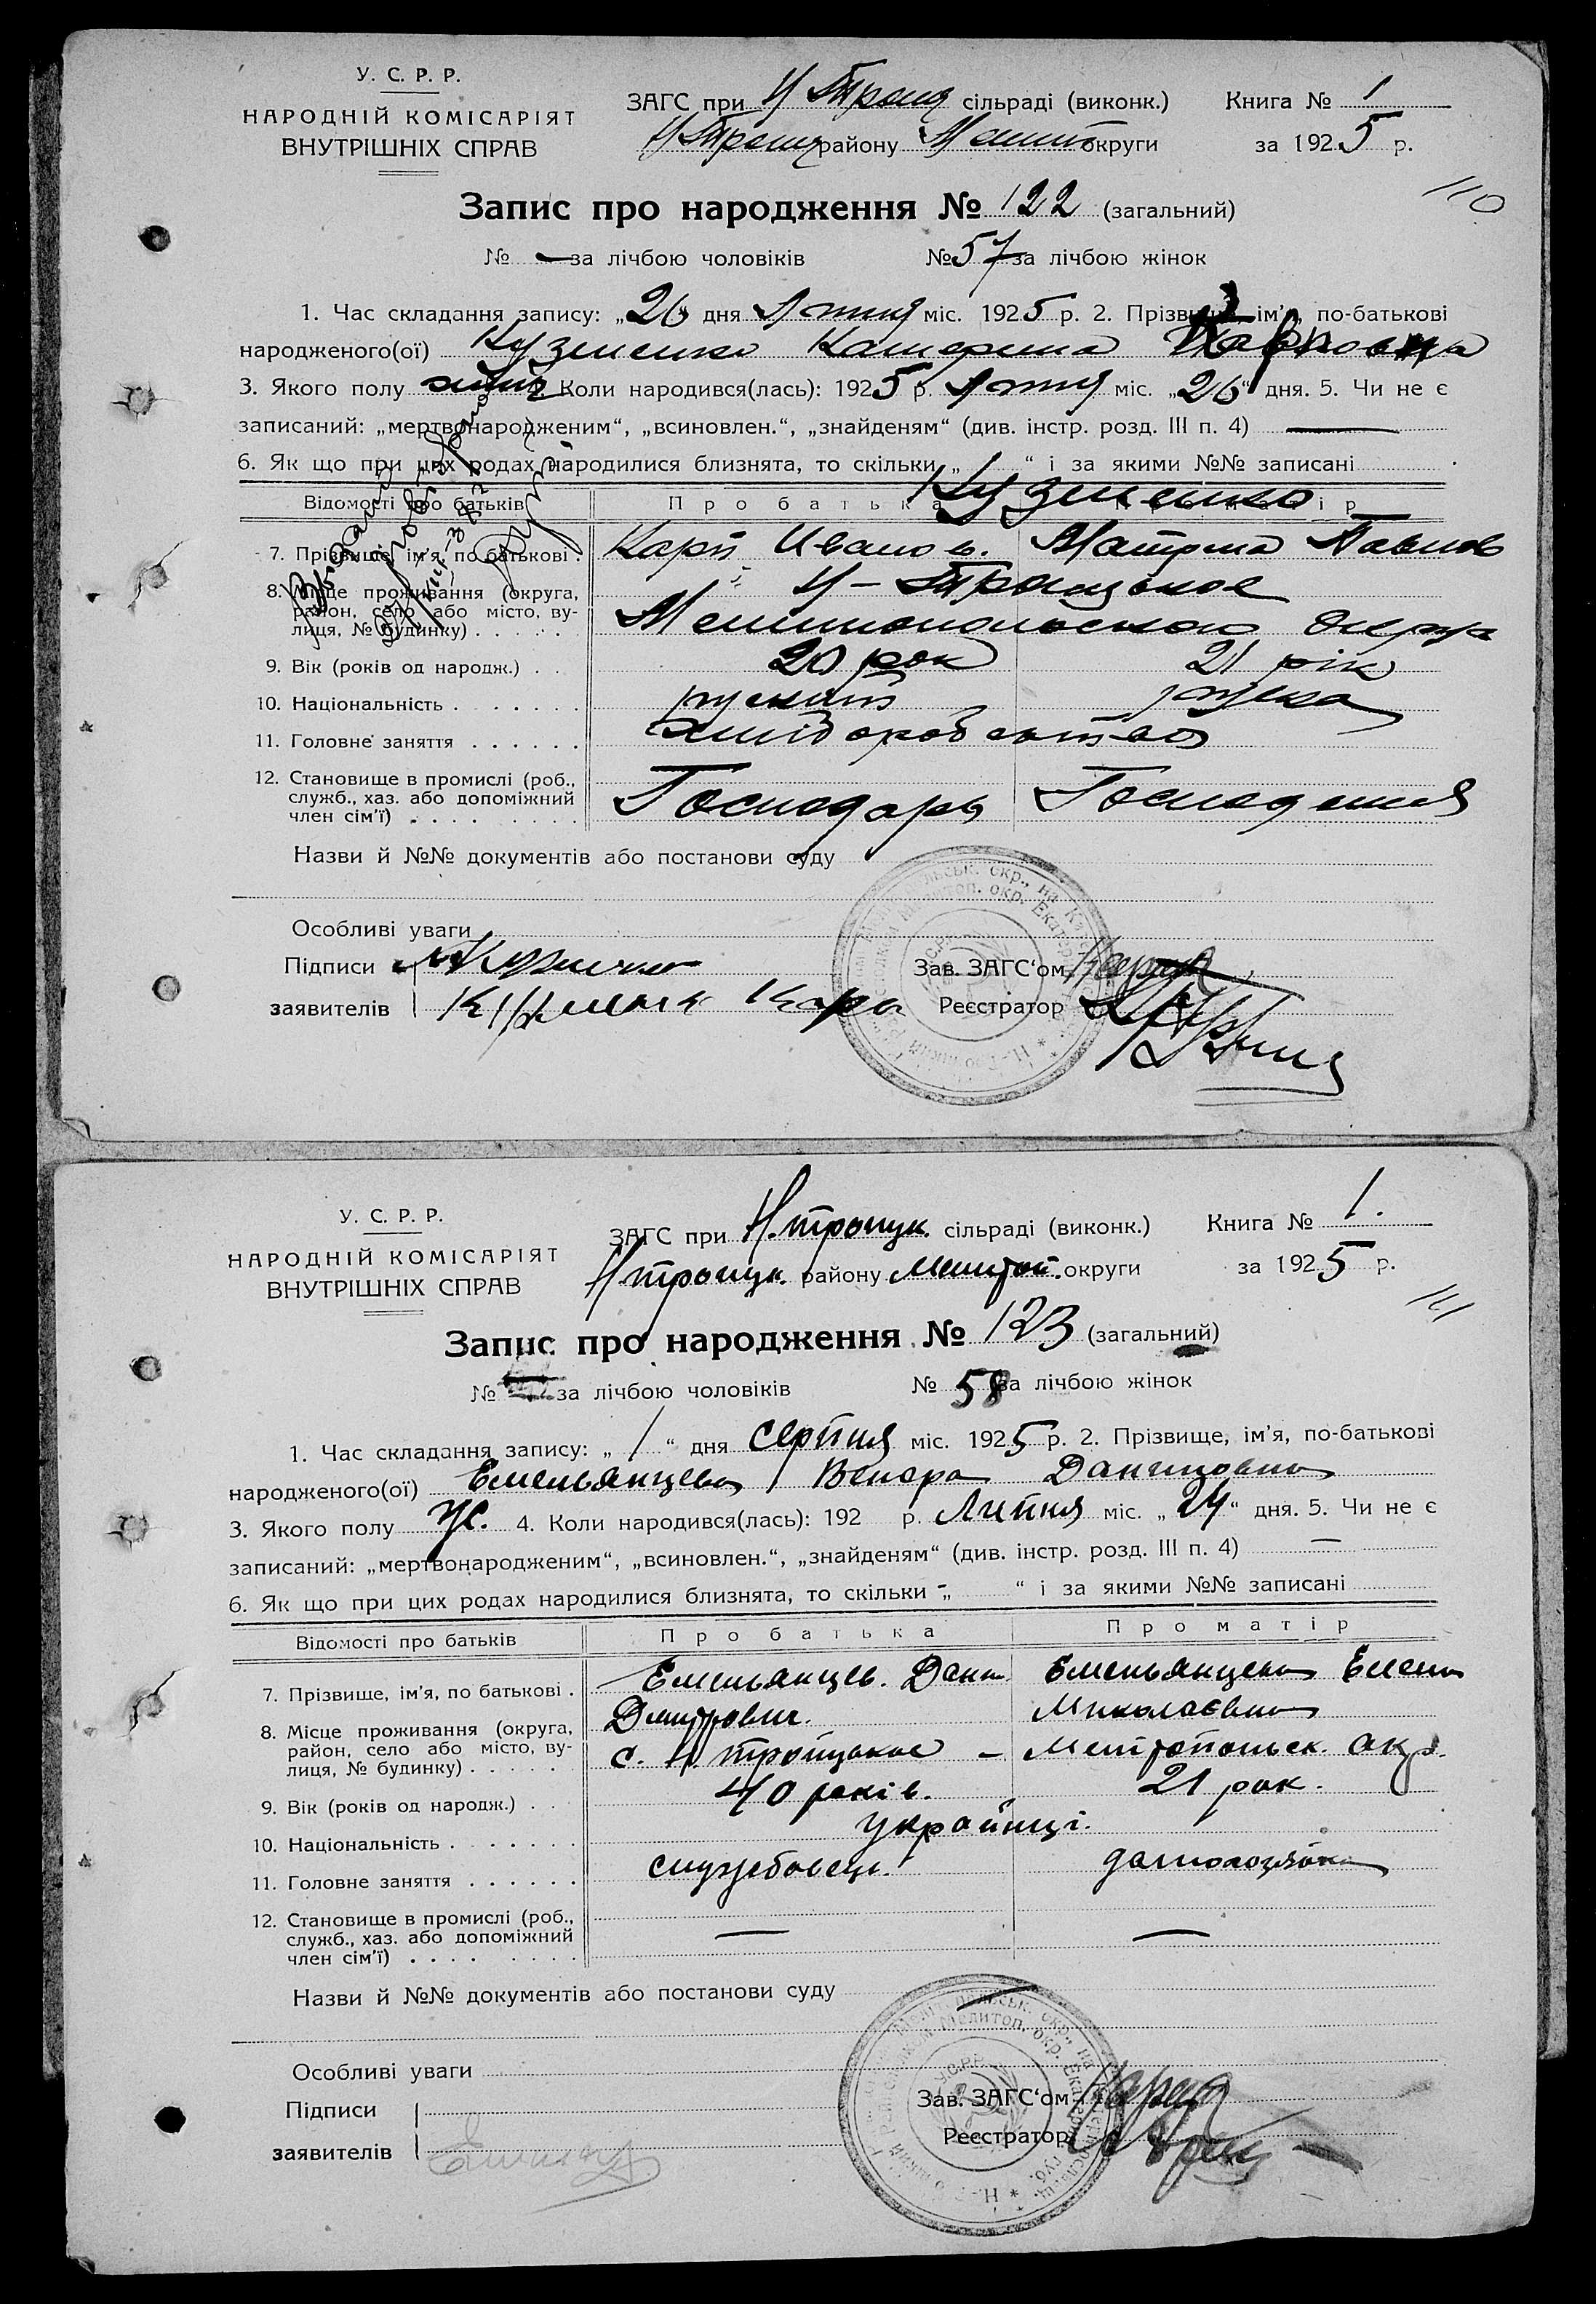 У. С. Р. Р.
НАРОДНІЙ КОМІСАРІЯТ
ВНУТРІШНІХ СПРАВ
ЗАГС при Н Троиц сільраді (виконк.) Книга № 1
Н Троиц району Мелит округи за 1925 р.
110
Запис про народження № 122 (загальний)
№ — за лічбою чоловіків № 57 за лічбою жінок
1. Час складання запису: „26" дня Липня міс. 1925 р. 2. Прізвище, ім'я, по-батькові
народженого(ої) Кузменко Катерина Карповна
3. Якого полу жіноч 4. Коли народився(лась): 1925 р. Липня міс. „26" дня. 5. Чи не є
записаний: „мертвонародженим", „всиновлен.", „знайденям" (див. інстр. розд. III п. 4) —
6. Як що при цих родах народилися близнята, то скільки „ " і за якими №№ записані
Відомості про батьків Про батька Про матір
Кузменко
7. Прізвище, ім'я, по батькові . Карп Иванов. Матрина Павлов
8. Місце проживання (округа, Н-Троицькое
район, село або місто, ву-
лиця, № будинку) . . . . . Мелитопольскою округа
9. Вік (років од народж.) . . 20 рок 21 рік
10. Національність . . . . . . . руский руска
11. Головне заняття . . . . . . хлиборобство
12. Становище в промислі (роб.,
служб., хаз. або допоміжний Господарь Господиня
член сім'ї) . . . . . . . .
Назви й №№ документів або постанови суду
Особливі уваги
Підписи Кузменко Зав. ЗАГС'ом
заявителів Карп Реєстратор
У. С. Р. Р.
НАРОДНІЙ КОМІСАРІЯТ
ВНУТРІШНІХ СПРАВ
ЗАГС при Н.троицк. сільраді (виконк.) Книга № 1.
Н троицк. району Мелитоп. округи за 1925 р.
111
Запис про народження № 123 (загальний)
№ за лічбою чоловіків № 58 за лічбою жінок
1. Час складання запису: „ 1 " дня серпня міс. 1925 р. 2. Прізвище, ім'я, по-батькові
народженого(ої) Емельянцева Венера Даниловна
3. Якого полу Ж. 4. Коли народився(лась): 192 р. Липня міс. „24" дня. 5. Чи не є
записаний: „мертвонародженим", „всиновлен.", „знайденям" (див. інстр. розд. III п. 4) —
6. Як що при цих родах народилися близнята, то скільки -„ " і за якими №№ записані
Відомості про батьків Про батька Про матір
7. Прізвище, ім'я, по батькові . Емельянцев. Дани Емельянцева Елена
Дмитрович. Миколаєвна
8. Місце проживання (округа,
район, село або місто, ву- с. Н. троицькое – Мелітопольск. окр.
лиця, № будинку) . . . . .
9. Вік (років од народж.) . . 40 років. 21 рок.
10. Національність . . . . . . . українці.
11. Головне заняття . . . . . . службовець. домохозяйка
12. Становище в промислі (роб.,
служб., хаз. або допоміжний — —
член сім'ї) . . . . . . . .
Назви й №№ документів або постанови суду —
Особливі уваги
Підписи Зав. ЗАГС'ом
заявителів Реєстратор